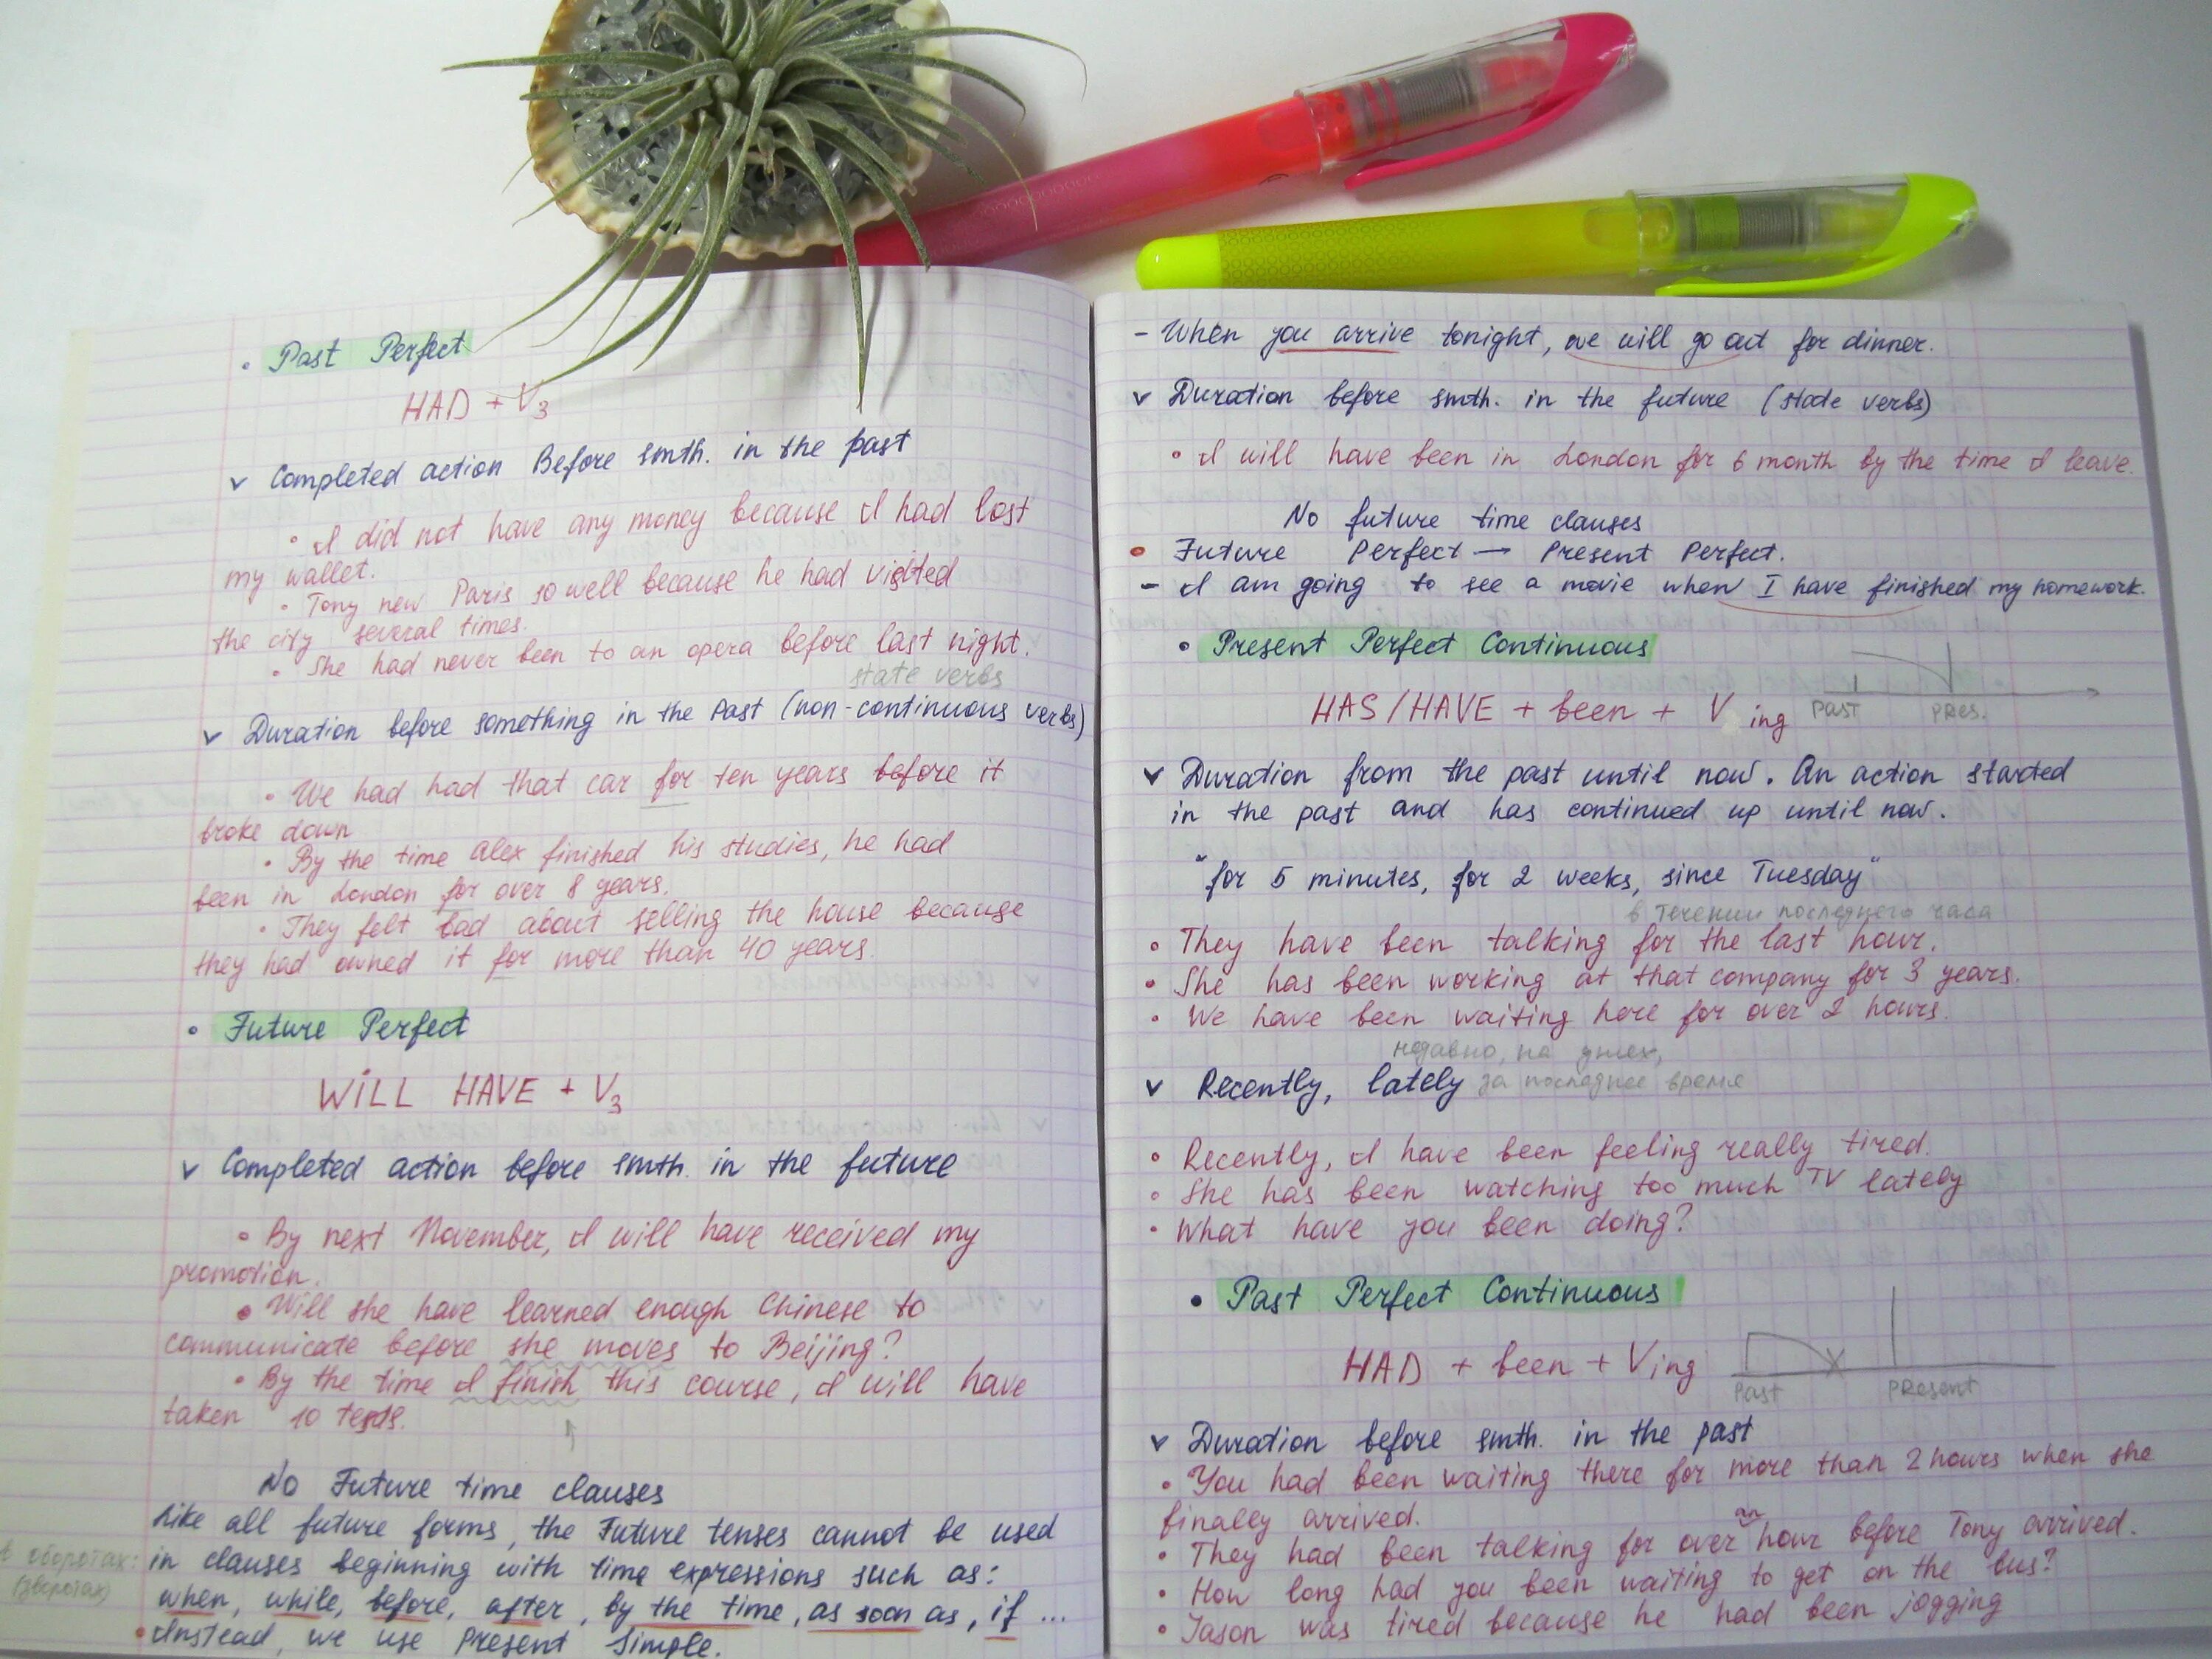 • Past Perfect
HAD + V3
v Completed action Before smth. in the past
• I did not have any money because I had lost
my wallet.
• Tony new Paris so well because he had visited
the city several times.
• She had never been to an opera before last night.
state verbs
v Duration before something in the past (non-continuous verbs)
• We had had that car for ten years before it
broke down
• By the time Alex finished his studies, he had
been in London for over 8 years.
• They felt bad about selling the house because
they had owned it for more than 40 years.
• Future Perfect
WiLL HAVE + V3
v Completed action before smth. in the future
• By next November, I will have received my
promotion.
• Will she have learned enough Chinese to
communicate before she moves to Beijing?
• By the time I finish this course, I will have
taken 10 tests.
No Future time clauses
Like all future forms, the Future tenses cannot be used
в оборотах: in clauses beginning with time expressions such as:
when, while, before, after, by the time, as soon as, if ...
• Instead, we use present simple.
- When you arrive tonight, we will go out for dinner.
v Duration before smth. in the future (state verbs)
• I will have been in London for 6 month by the time I leave.
No future time clauses
• Future Perfect → Present Perfect.
- I am going to see a movie when I have finished my homework.
• Present Perfect Continuous
HAS/HAVE + been + V ing
past pres.
v Duration from the past until now. An action started
in the past and has continued up until now.
"for 5 minutes, for 2 weeks, since Tuesday"
в течении последнего часа
• They have been talking for the last hour.
• She has been working at that company for 3 years.
• We have been waiting here for over 2 hours.
недавно, на днях,
v Recently, lately за последнее время
• Recently, I have been feeling really tired.
• She has been watching too much TV lately
• What have you been doing?
• Past Perfect Continuous
HAD + been + Ving
Past Present
v Duration before smth. in the past
• You had been waiting there for more than 2 hours when she
finally arrived.
• They had been talking for over an hour before Tony arrived.
• How long had you been waiting to get on the bus?
• Jason was tired because he had been jogging